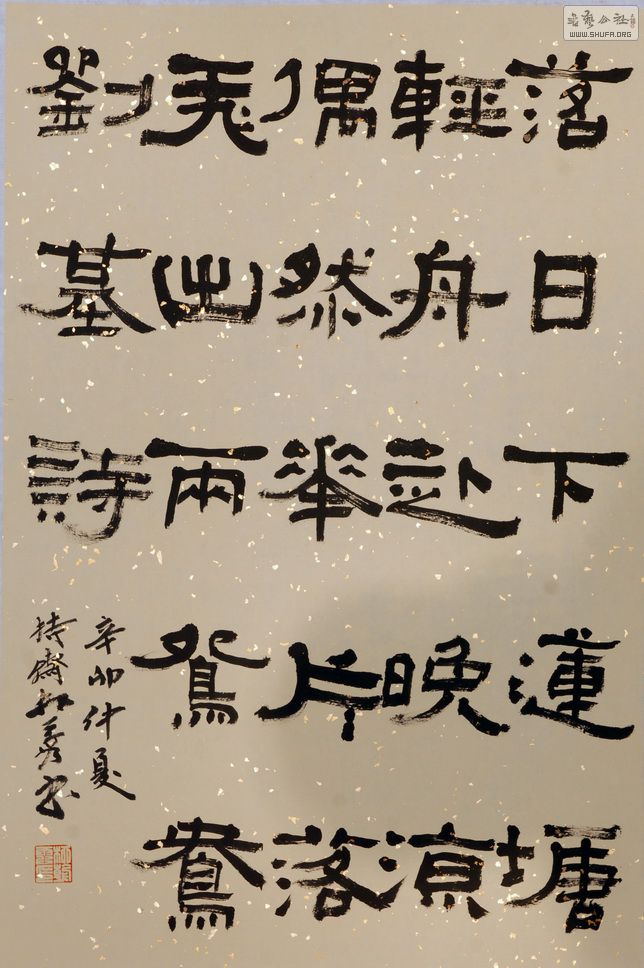 落日下蓮塘
輕舟赴晚涼
偶然華片落
飛出兩鴛鴦
劉基詩
辛卯仲夏
持齋
書藝公社
WWW.SHUFA.ORG